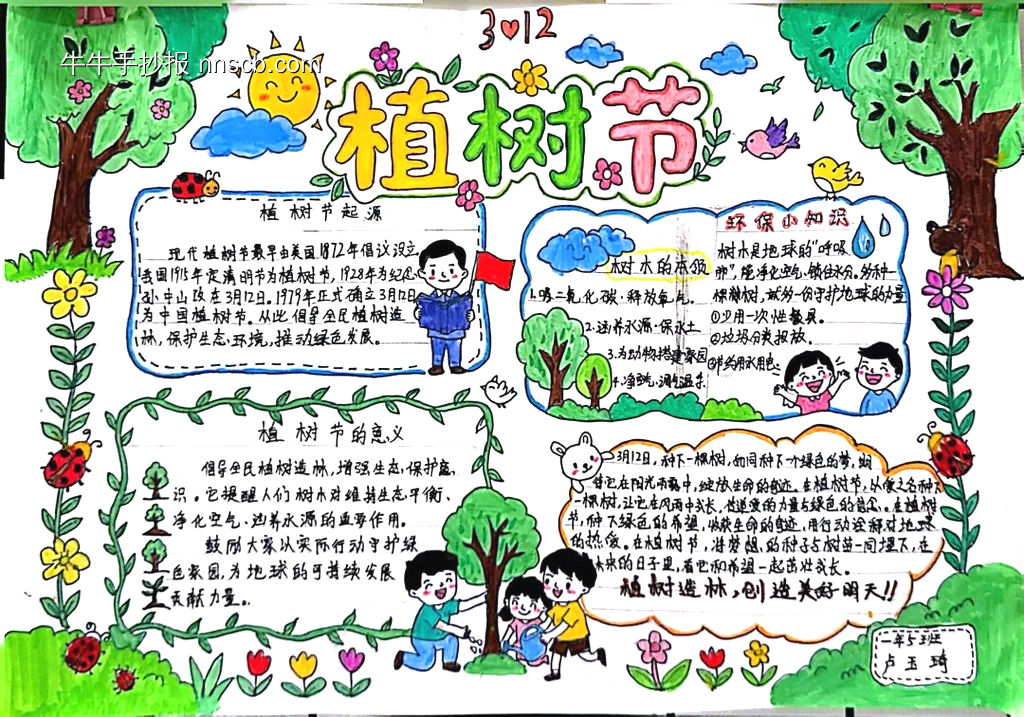 3 12
牛牛手抄报 nnscb.com
植树节
植树节起源
现代植树节最早由美国1872年倡议设立
我国1915年定清明节为植树节,1928年为纪念
孙中山改在3月12日。1979年正式确立3月12日
为中国植树节。从此倡导全民植树造
林,保护生态环境,推动绿色发展。
树木的本领
1.吸二氧化碳·释放氧气。
2.涵养水源·保水土
3.为动物搭建家园
4.净空气,调气温
环保小知识
树木是地球的"呼吸
肺",能净化空气,锁住水分。
一棵树,就多一份守护地球的力量
①少用一次性餐具。
②垃圾分类投放。
③节约用水用电。
植树节的意义
倡导全民植树造林,增强生态保护意
识。它提醒人们树木对维持生态平衡、
净化空气、涵养水源的重要作用。
鼓励大家以实际行动守护绿
色家园,为地球的可持续发展
贡献力量。
3月12日,种下一棵树,如同种下一个绿色的梦,期
待它在阳光雨露中,绽放生命的奇迹。在植树节,以爱之名种下
一棵树,让它在风雨中成长,传递爱的力量与绿色的信念。在植树
节,种下绿色的希望,收获生命的奇迹,用行动诠释对地球
的热爱。在植树节,将梦想的种子与树苗一同埋下,在
未来的日子里,看它和希望一起茁壮成长。
植树造林,创造美好明天!!
一年5班
卢玉琦